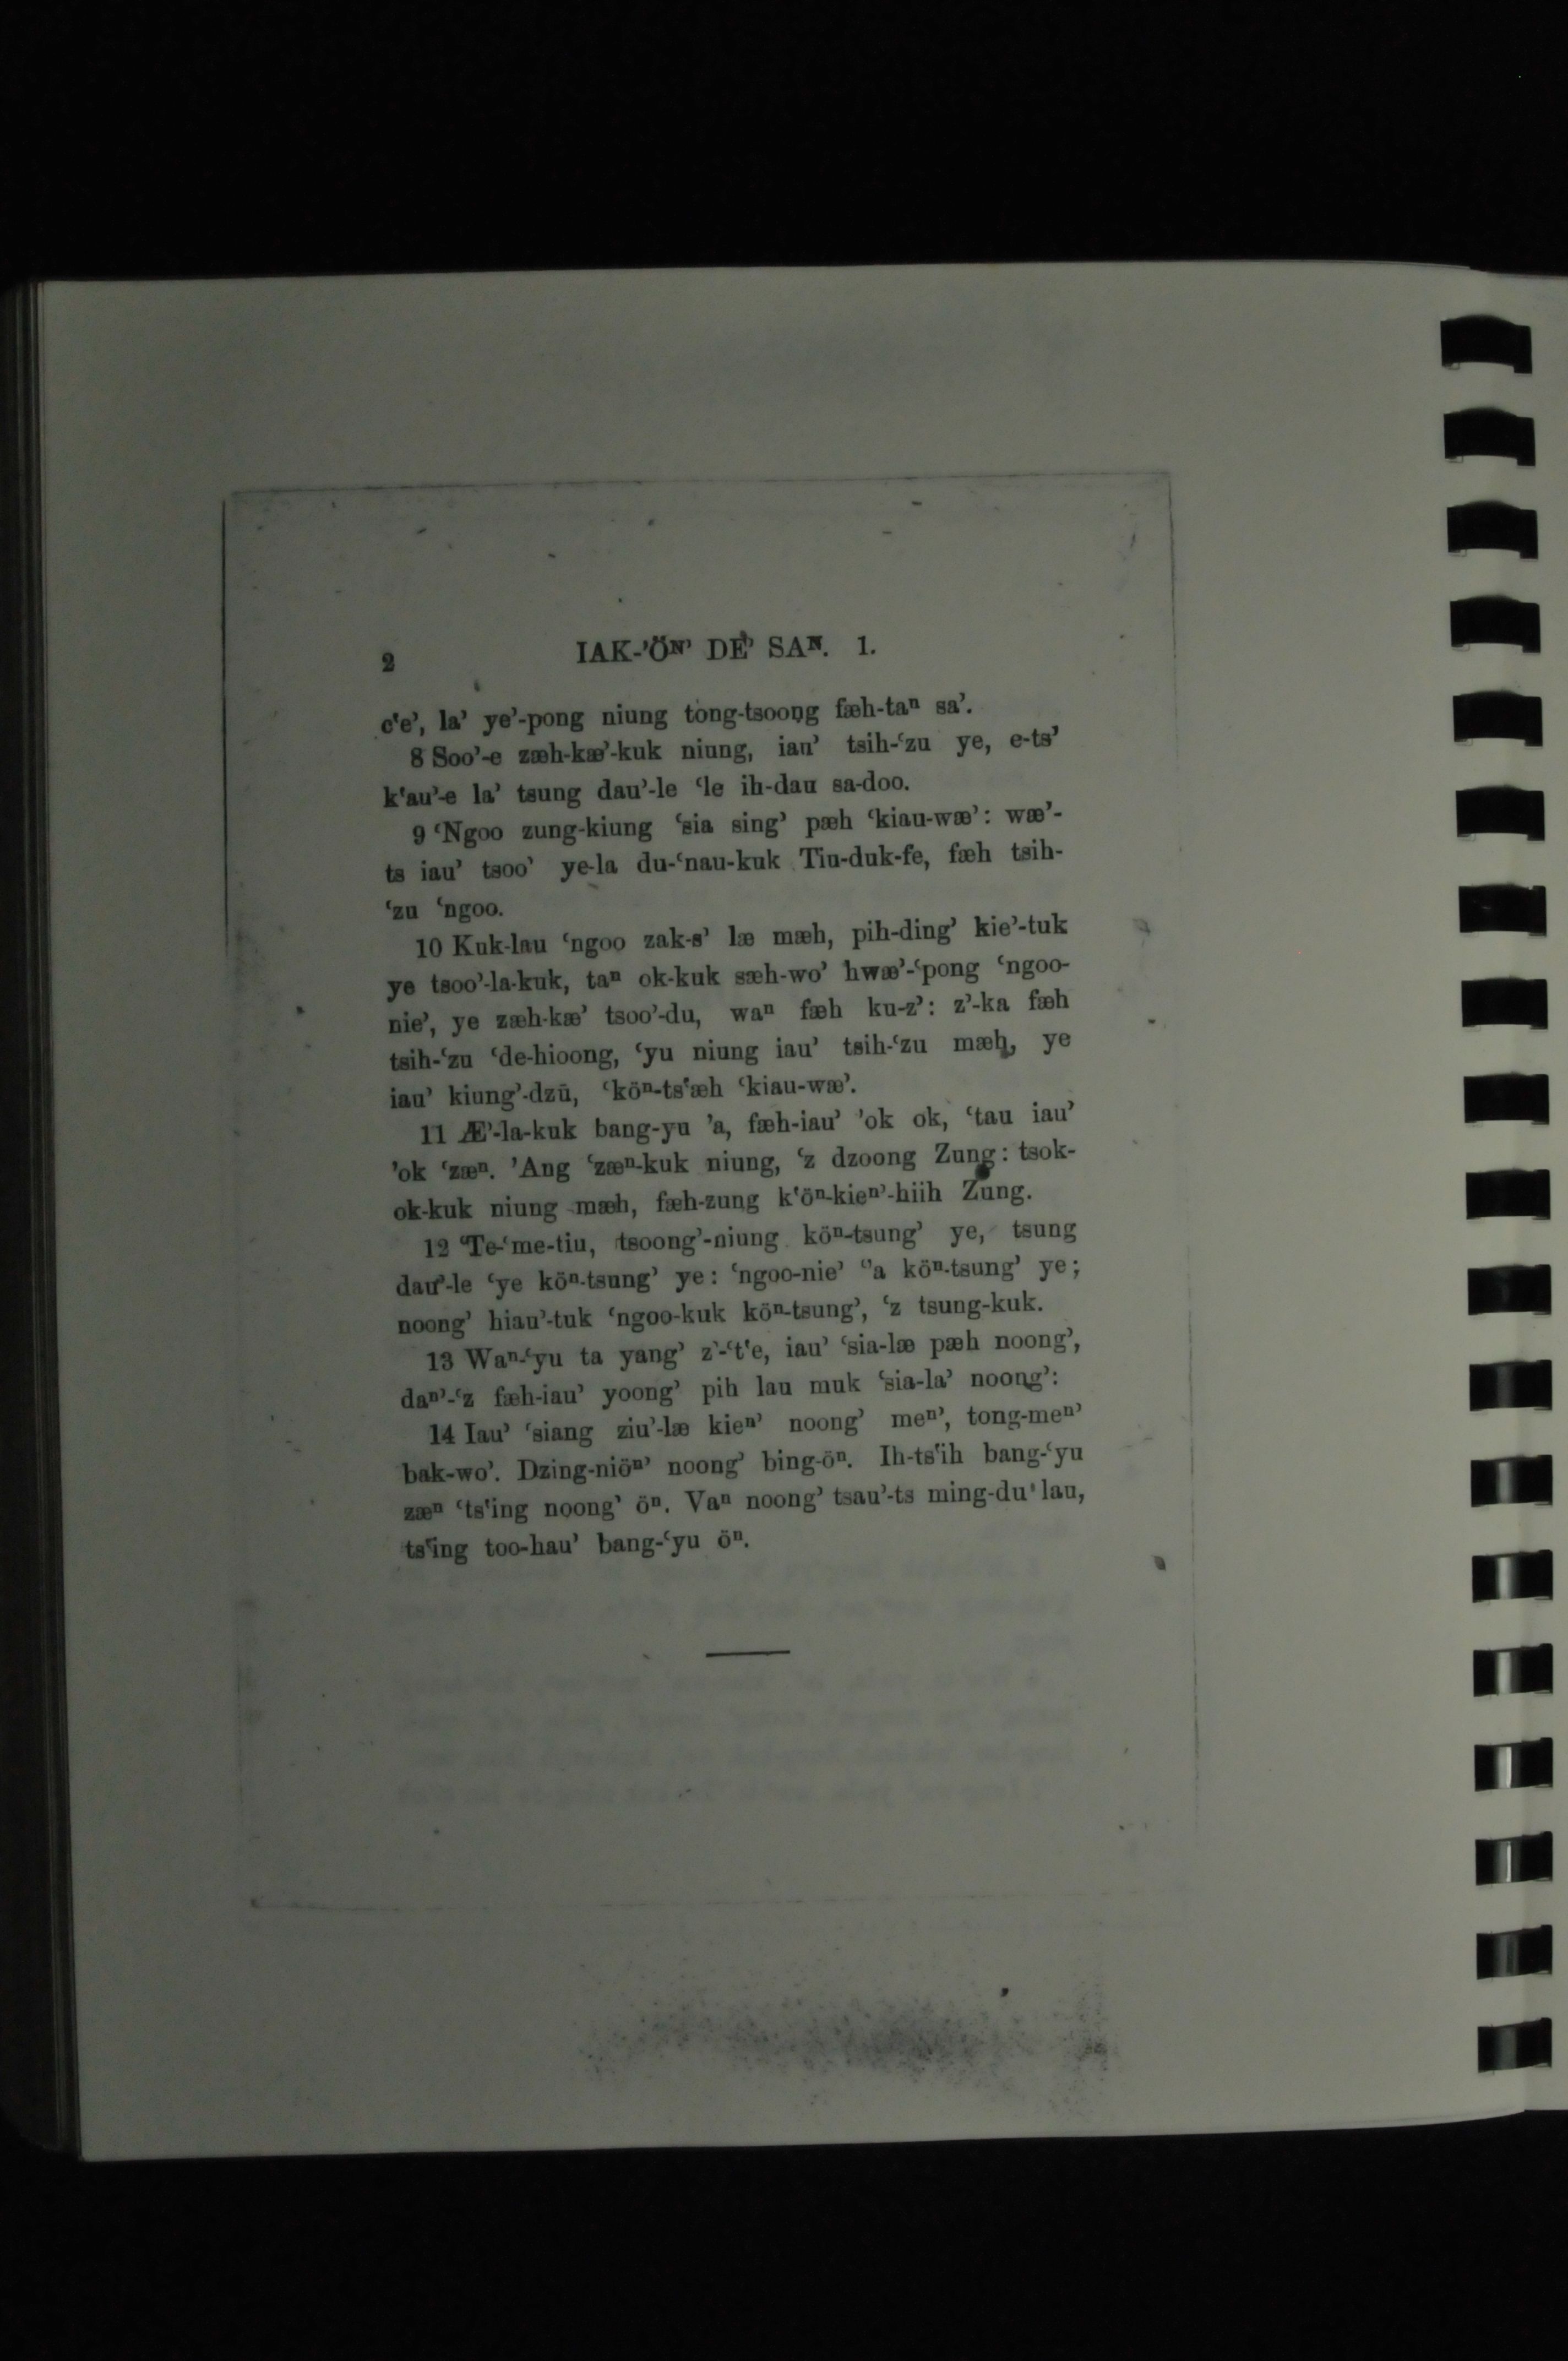 2 IAK-’ÖN’ DE’ SAN. 1.
c‘e’, la’ ye’-pong niung tong-tsoong fæh-taⁿ sa’.
8 Soo’-e zæh-kæ’-kuk niung, iau’ tsih-‘zu ye, e-ts’
k‘au’-e la’ tsung dau’-le ‘le ih-dau sa-doo.
9 ‘Ngoo zung-kiung ‘sia sing’ pæh ‘kiau-wæ’: wæ’-
ts iau’ tsoo’ ye-la du-‘nau-kuk Tiu-duk-fe, fæh tsih-
‘zu ‘ngoo.
10 Kuk-lau ‘ngoo zak-s’ læ mæh, pih-ding’ kie’-tuk
ye tsoo’-la-kuk, taⁿ ok-kuk sæh-wo’ hwæ’-‘pong ‘ngoo-
nie’, ye zæh-kæ’ tsoo’-du, waⁿ fæh ku-z’: z’-ka fæh
tsih-‘zu ‘de-hioong, ‘yu niung iau’ tsih-‘zu mæh, ye
iau’ kiung’-dzū, ‘köⁿ-ts‘æh ‘kiau-wæ’.
11 Æ’-la-kuk bang-yu ’a, fæh-iau’ ’ok ok, ‘tau iau’
’ok ‘zæⁿ. ’Ang ‘zæⁿ-kuk niung, ‘z dzoong Zung: tsok-
ok-kuk niung mæh, fæh-zung k‘öⁿ-kieⁿ’-hiih Zung.
12 ‘Te-‘me-tiu, tsoong’-niung köⁿ-tsung’ ye, tsung
dau’-le ‘ye köⁿ-tsung’ ye: ‘ngoo-nie’ ‘’a köⁿ-tsung’ ye;
noong’ hiau’-tuk ‘ngoo-kuk köⁿ-tsung’, ‘z tsung-kuk.
13 Waⁿ-‘yu ta yang’ z’-‘t‘e, iau’ ‘sia-læ pæh noong’,
daⁿ’-‘z fæh-iau’ yoong’ pih lau muk ‘sia-la’ noong’:
14 Iau’ ‘siang ziu’-læ kieⁿ’ noong’ meⁿ’, tong-meⁿ’
bak-wo’. Dzing-niöⁿ’ noong’ bing-öⁿ. Ih-ts‘ih bang-‘yu
zæⁿ ‘ts‘ing noong’ öⁿ. Vaⁿ noong’ tsau’-ts ming-du’ lau,
ts‘ing too-hau’ bang-‘yu öⁿ.